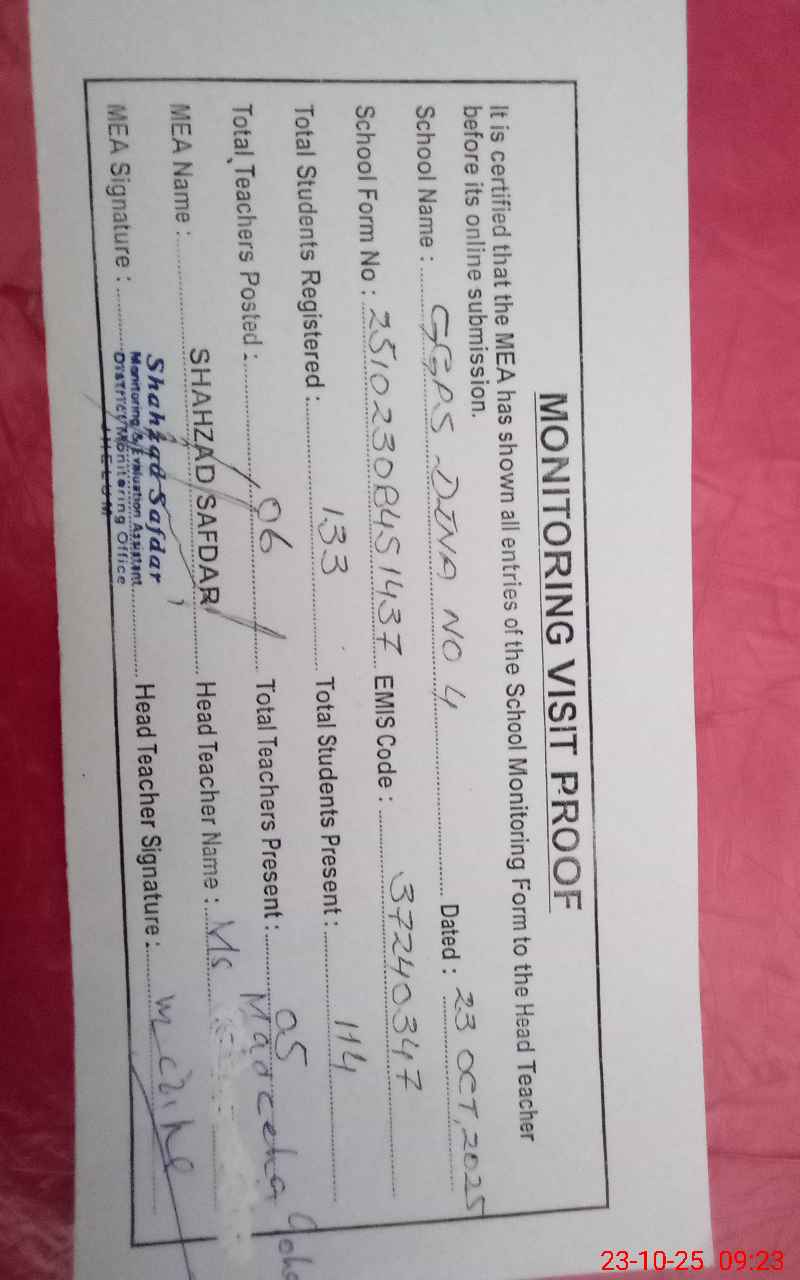 MONITORING VISIT PROOF
It is certified that the MEA has shown all entries of the School Monitoring Form to the Head Teacher
before its online submission.
School Name : GGPS DINA NO 4 Dated : 23 OCT, 2025
School Form No : 25102308451437 EMIS Code : 37240347
Total Students Registered : 133 Total Students Present : 114
Total Teachers Posted : 06 Total Teachers Present : 05
MEA Name : SHAHZAD SAFDAR Head Teacher Name : Ms
MEA Signature : Head Teacher Signature :
Shahzad Safdar
Monitoring & Evaluation Assistant
District Monitoring Office
JHELUM
23-10-25 09:23